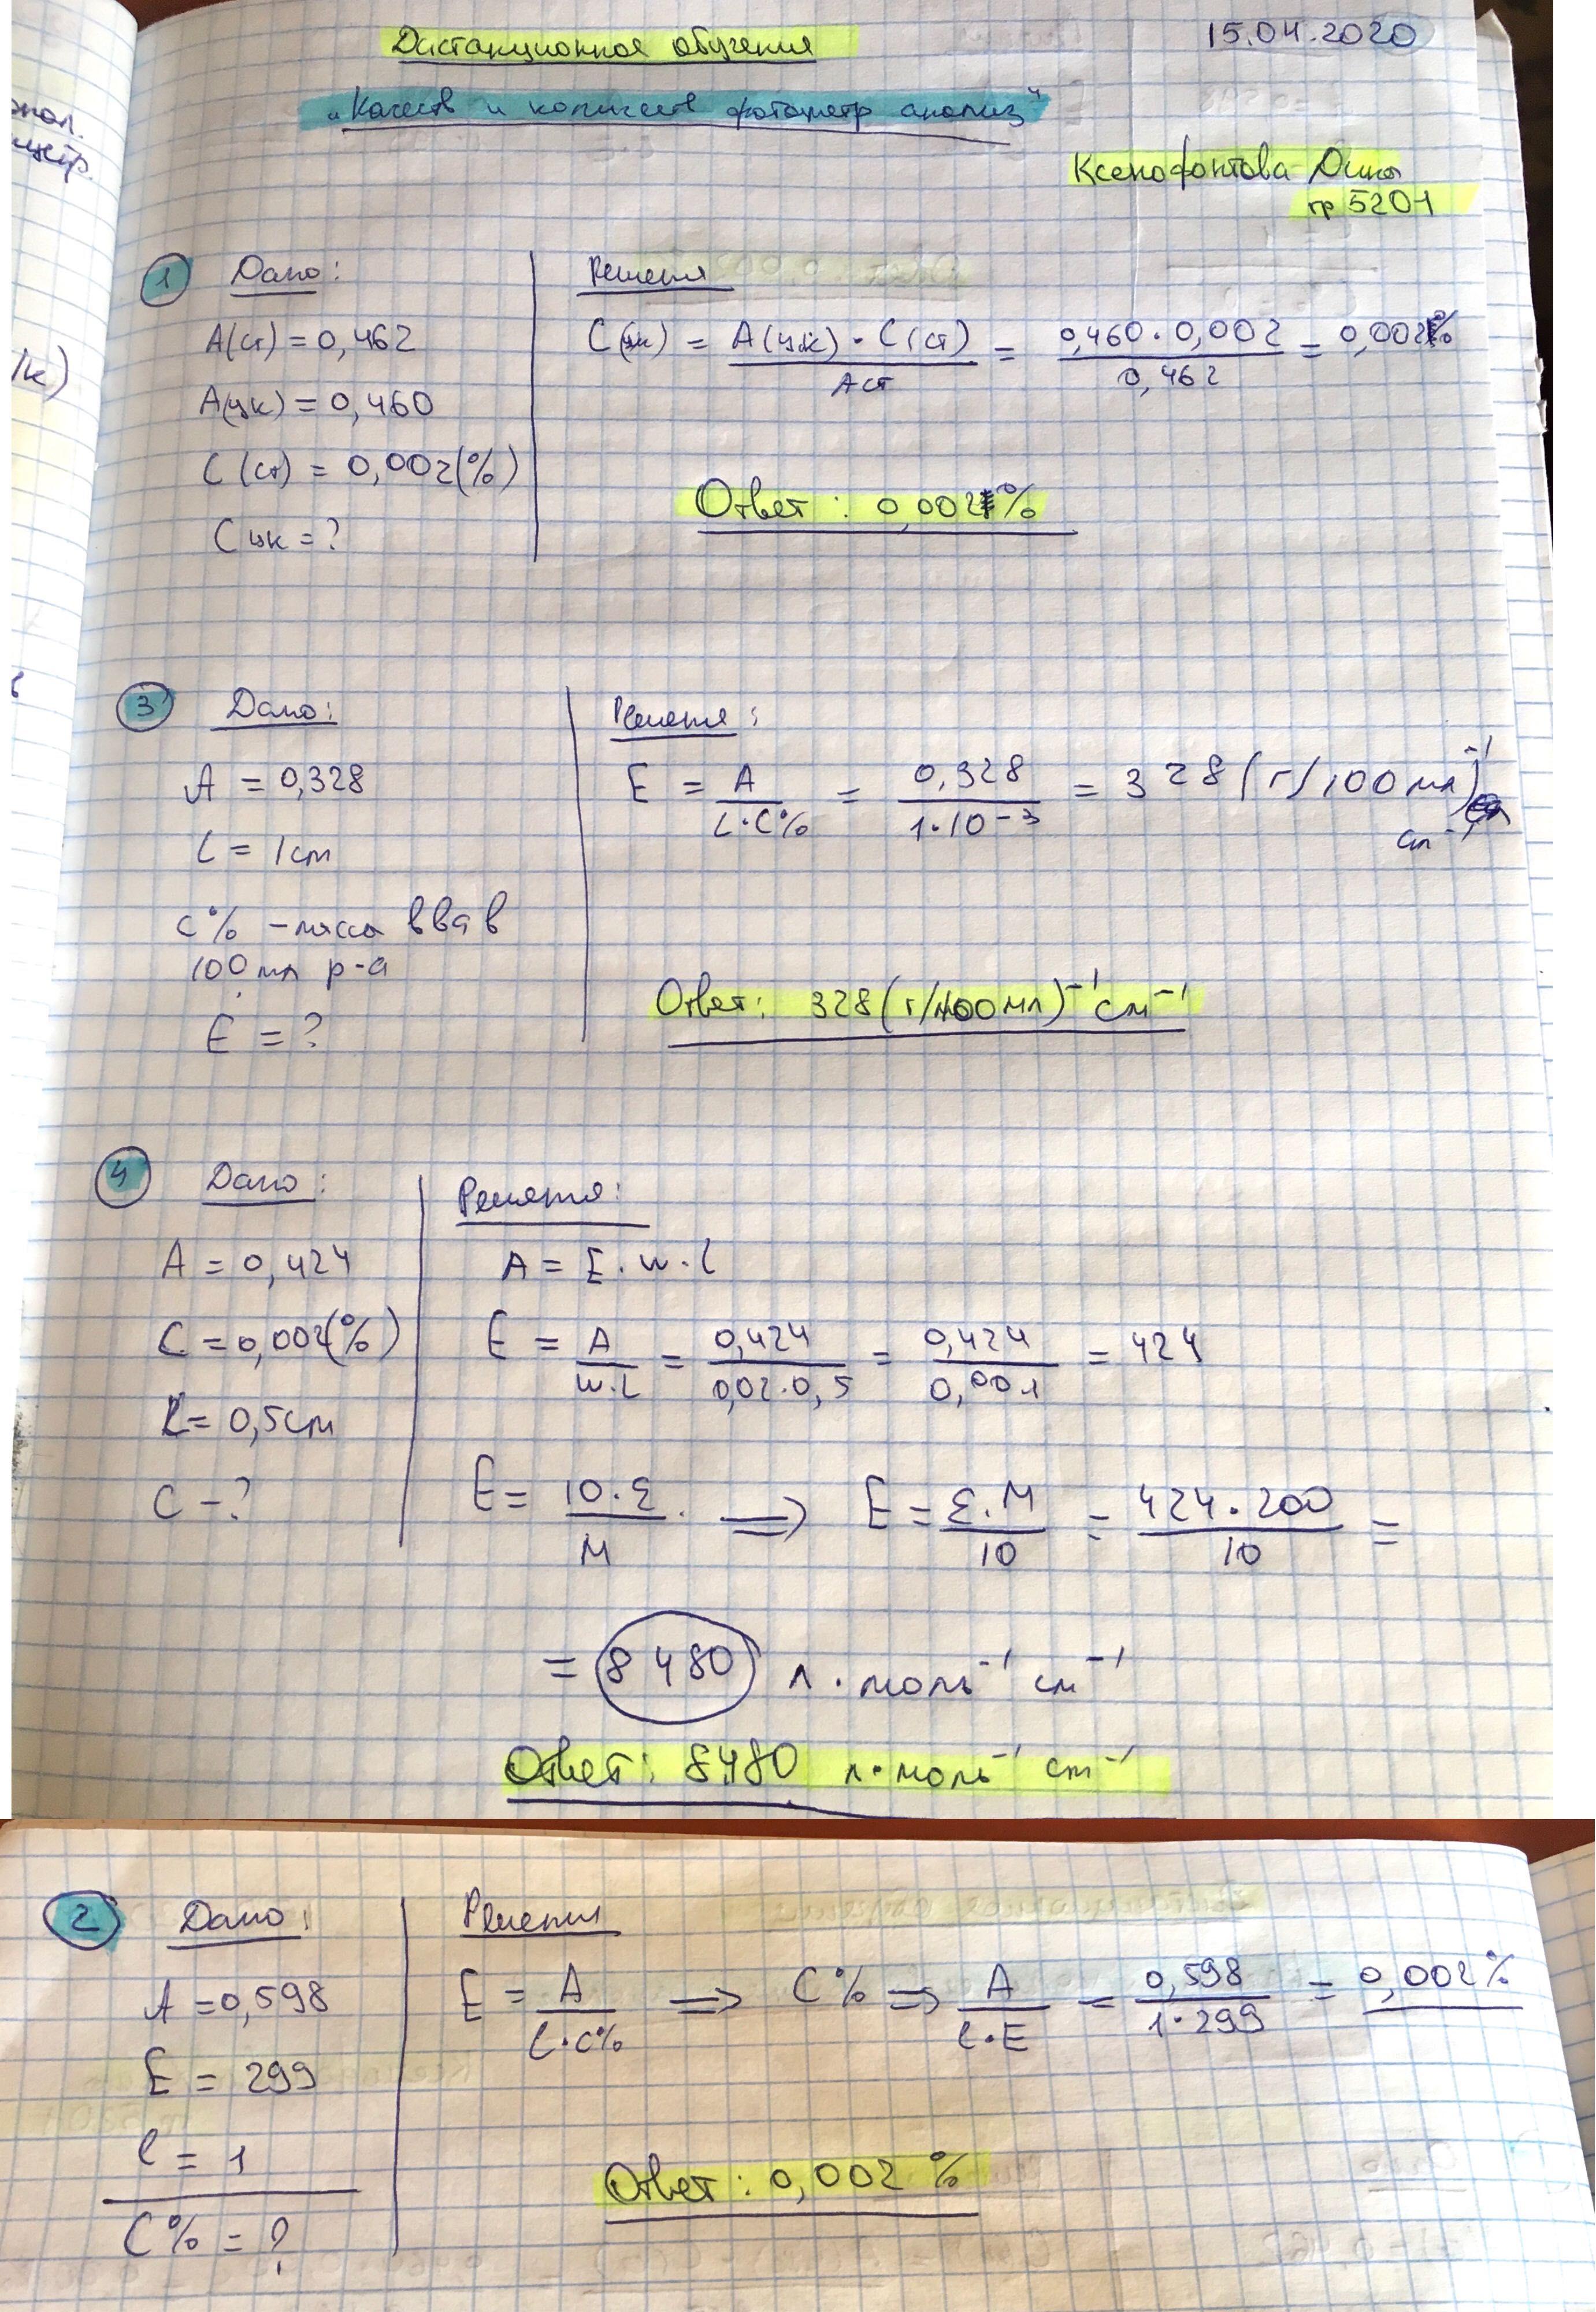 Дистанционное обучения
15.04.2020
"Качеств и количеств фотометр анализ"
Ксенофонтова Дина
гр 5201
1 Дано:
A(ст) = 0,462
A(цк) = 0,460
C(ст) = 0,002(%)
Cцк = ?
Решения
C(цк) = A(цк) · C(ст) / Aст = 0,460 · 0,002 / 0,462 = 0,002%
Ответ: 0,002%
3 Дано:
A = 0,328
l = 1см
C% - масса вва в
100 мл р-а
E = ?
Решения:
E = A / l·C% = 0,328 / 1·10-3 = 328 (г/100 мл)-1
см-1
Ответ: 328 (г/100мл)-1 см-1
4 Дано:
A = 0,424
C = 0,002(%)
L = 0,5см
C - ?
Решения:
A = E·w·l
E = A / w·l = 0,424 / 0,02·0,5 = 0,424 / 0,001 = 424
E = 10·ε / M => E = ε·M / 10 = 424·200 / 10 =
= 8480 л·моль-1 см-1
Ответ: 8480 л·моль-1 см-1
2 Дано:
A = 0,598
E = 299
l = 1
C% = ?
Решения
E = A / l·C% => C% => A / l·E = 0,598 / 1·299 = 0,002%
Ответ: 0,002%